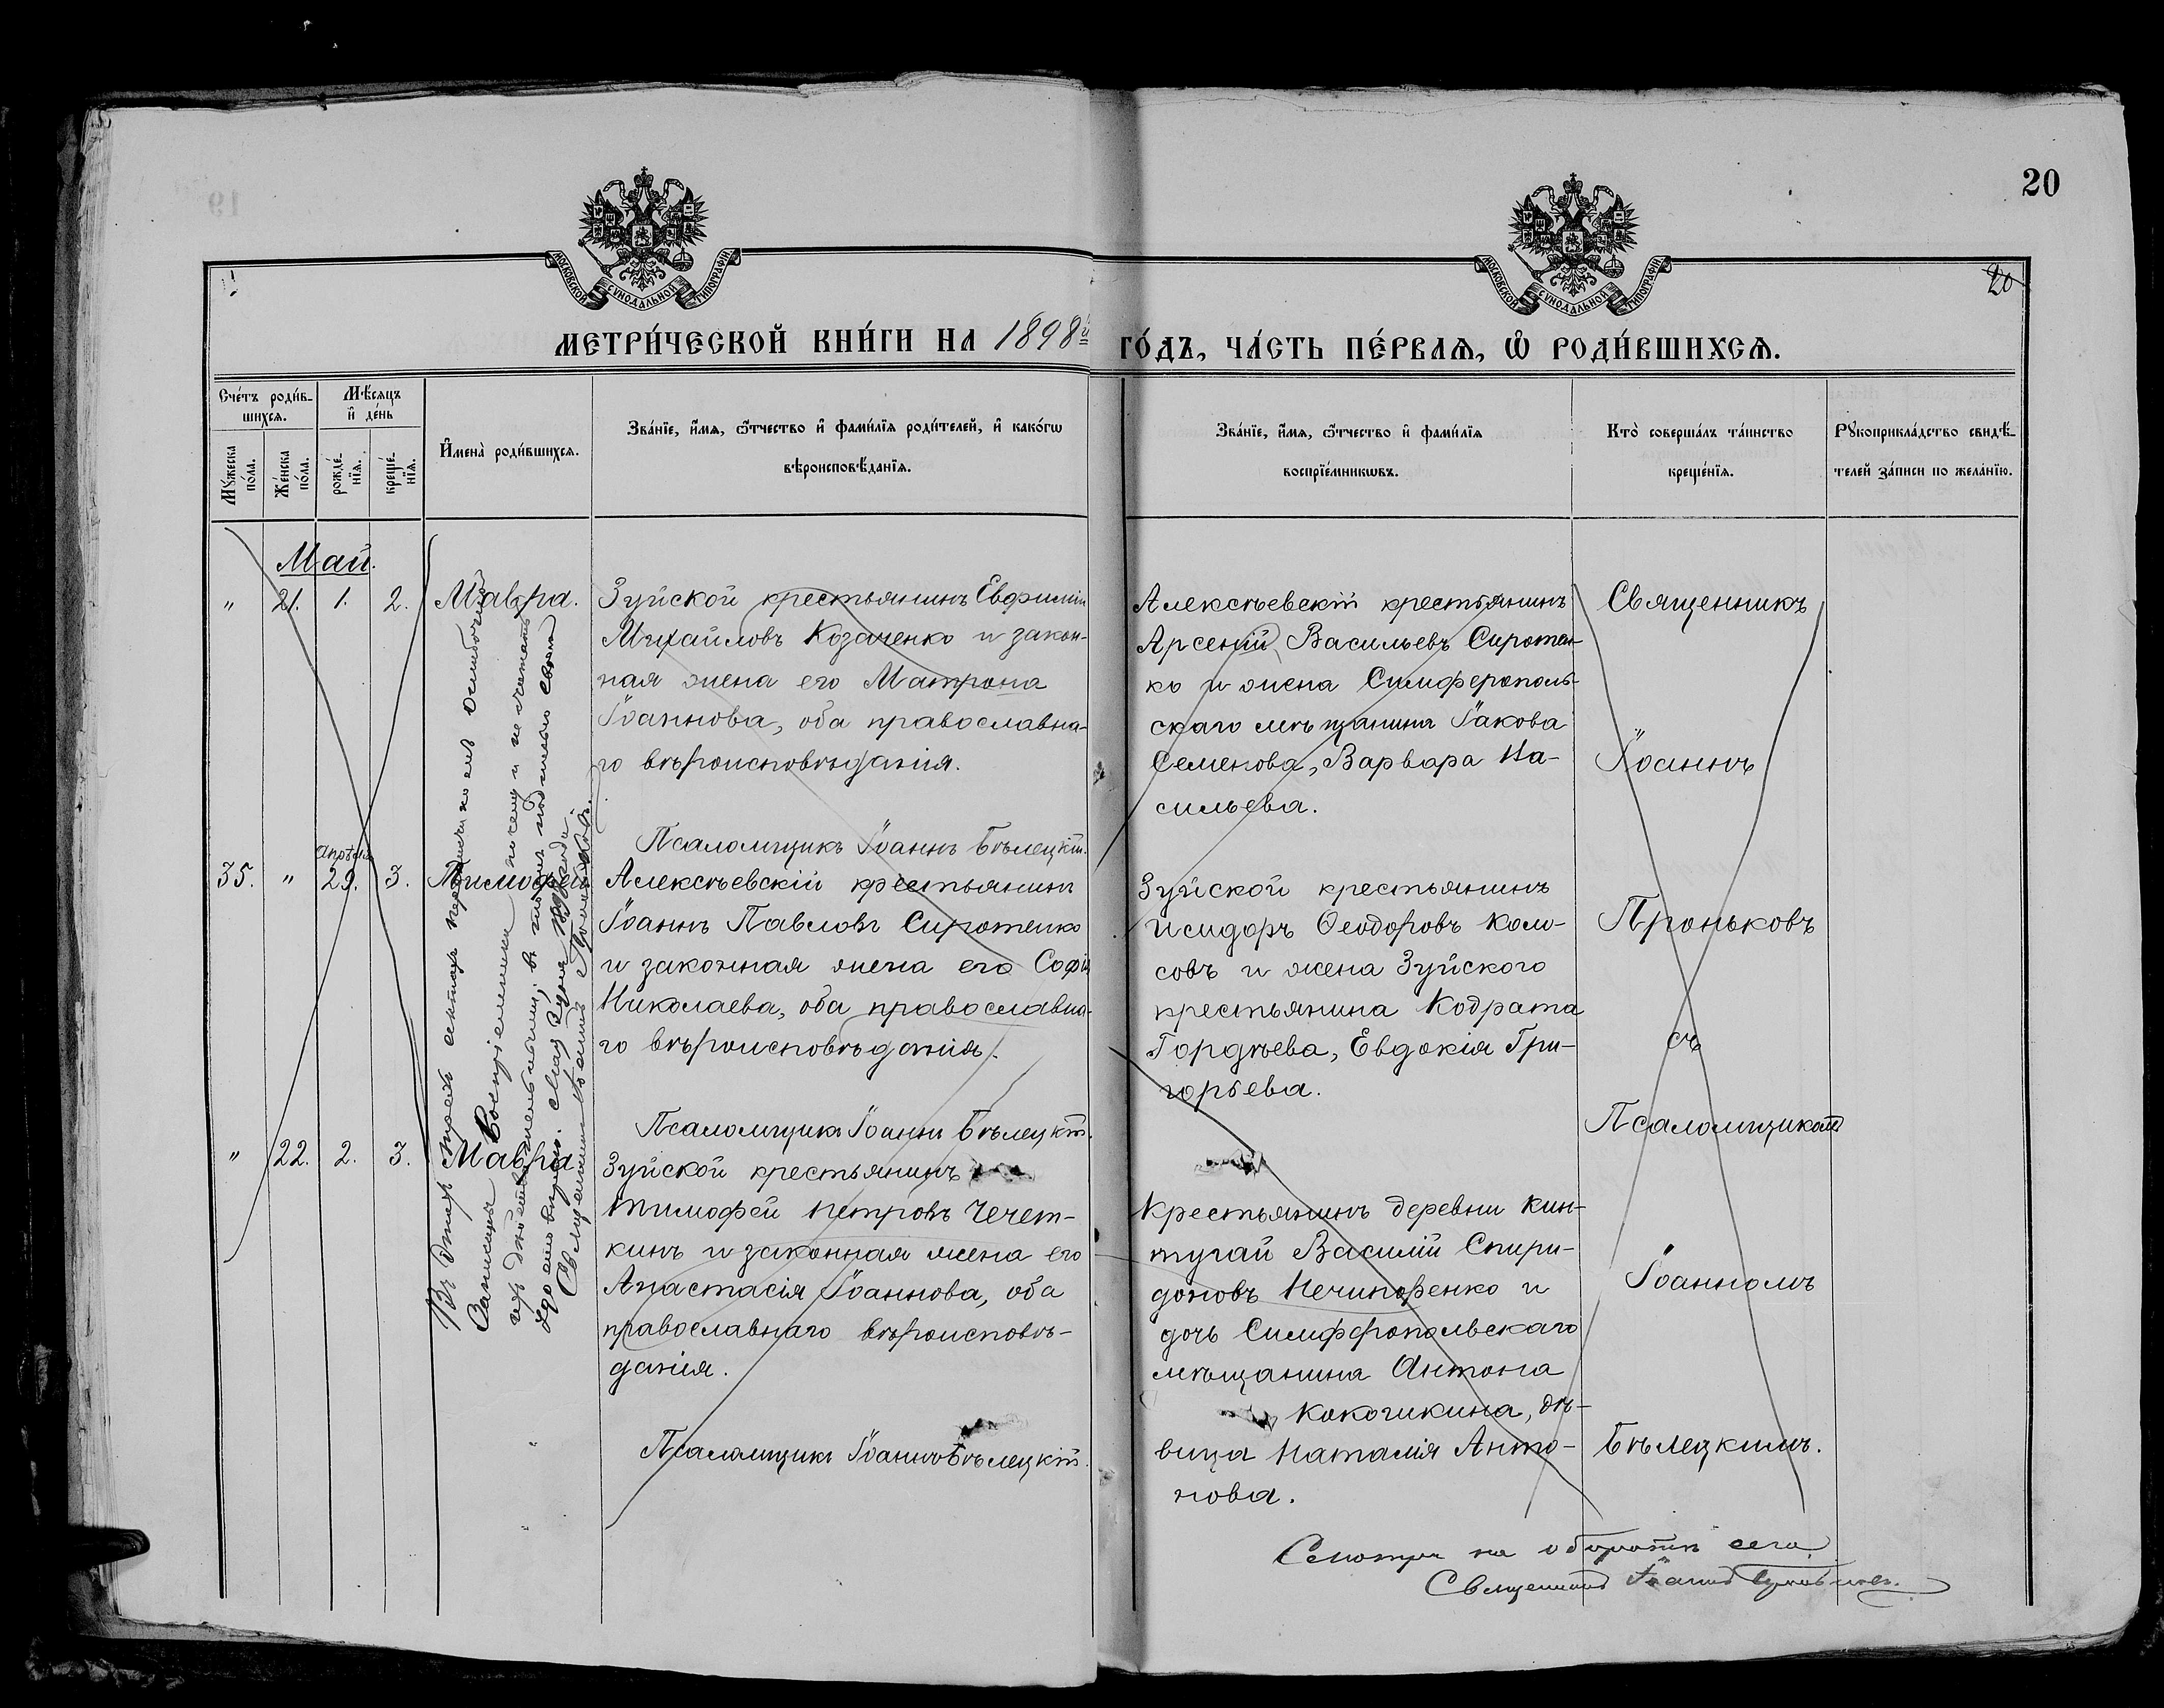 20
20
МОСКОВСКОЙ СѴНОДАЛЬНОЙ ТИПОГРАФІИ
МОСКОВСКОЙ СѴНОДАЛЬНОЙ ТИПОГРАФІИ
МЕТРИ́ЧЕСКОЙ КНИ́ГИ НА 1898й ГО́ДЪ, ЧА́СТЬ ПЕ́РВАѦ, Ѡ҆ РОДИ́ВШИХСѦ.
Сче́тъ роди́в-
шихсѧ.
Мѣ́сѧцъ
и҆ де́нь
Мꙋ́жеска
по́ла.
Же́нска
по́ла.
рожде́-
нїѧ.
креще́-
нїѧ.
И҆мена̀ роди́вшихсѧ.
Зва́нїе, и҆́мѧ, ѻ҆́тчество и҆ фами́лїѧ роди́телей, и҆ како́гѡ
вѣроисповѣ́данїѧ.
Зва́нїе, и҆́мѧ, ѻ҆́тчество и҆ фами́лїѧ
воспрїе́мникѡвъ.
Кто̀ соверша́лъ та́инство
креще́нїѧ.
Рꙋкоприкла́дство свидѣ́-
телей за́писи по жела́нїю.
Май.
" 21. 1. 2. Мавра.
Зуйской крестьянинъ Евфимій
Михайловъ Козаченко и закон-
ная жена его Матрона
Іоаннова, оба православна-
го вѣроисповѣданія.
Псаломщикъ Іоаннъ Бѣлецкій.
Алексѣевскій крестьянинъ
Арсеній Васильевъ Сиротен-
ко и жена Симферополь-
скаго мѣщанина Іакова
Семенова, Варвара Ва-
сильева.
35. " апрѣля 29. 3. Тимофей
Алексѣевскій крестьянинъ
Іоаннъ Павловъ Сиротенко
и законная жена его Софія
Николаева, оба православна-
го вѣроисповѣданія.
Псаломщикъ Іоаннъ Бѣлецкій.
Зуйской крестьянинъ
Исидоръ Ѳеодоровъ Коло-
совъ и жена Зуйского
крестьянина Кодрата
Гордѣева, Евдокія Гри-
горьева.
" 22. 2. 3. Мавра
Зуйской крестьянинъ
Тимофей Петровъ Чечет-
кинъ и законная жена его
Анастасія Іоаннова, оба
православнаго вѣроисповѣ-
данія.
Псаломщикъ Іоаннъ Бѣлецкій.
Крестьянинъ деревни Кин-
тугай Василій Спири-
доновъ Нечипоренко и
дочь Симферопольскаго
мѣщанина Антона
Кокочикина, дѣ-
вица Наталія Анто-
нова.
Священникъ
Іоаннъ
Проньковъ
съ
Псаломщикомъ
Іоанномъ
Бѣлецкимъ.
Смотри на оборотѣ сего
Священникъ Іоаннъ